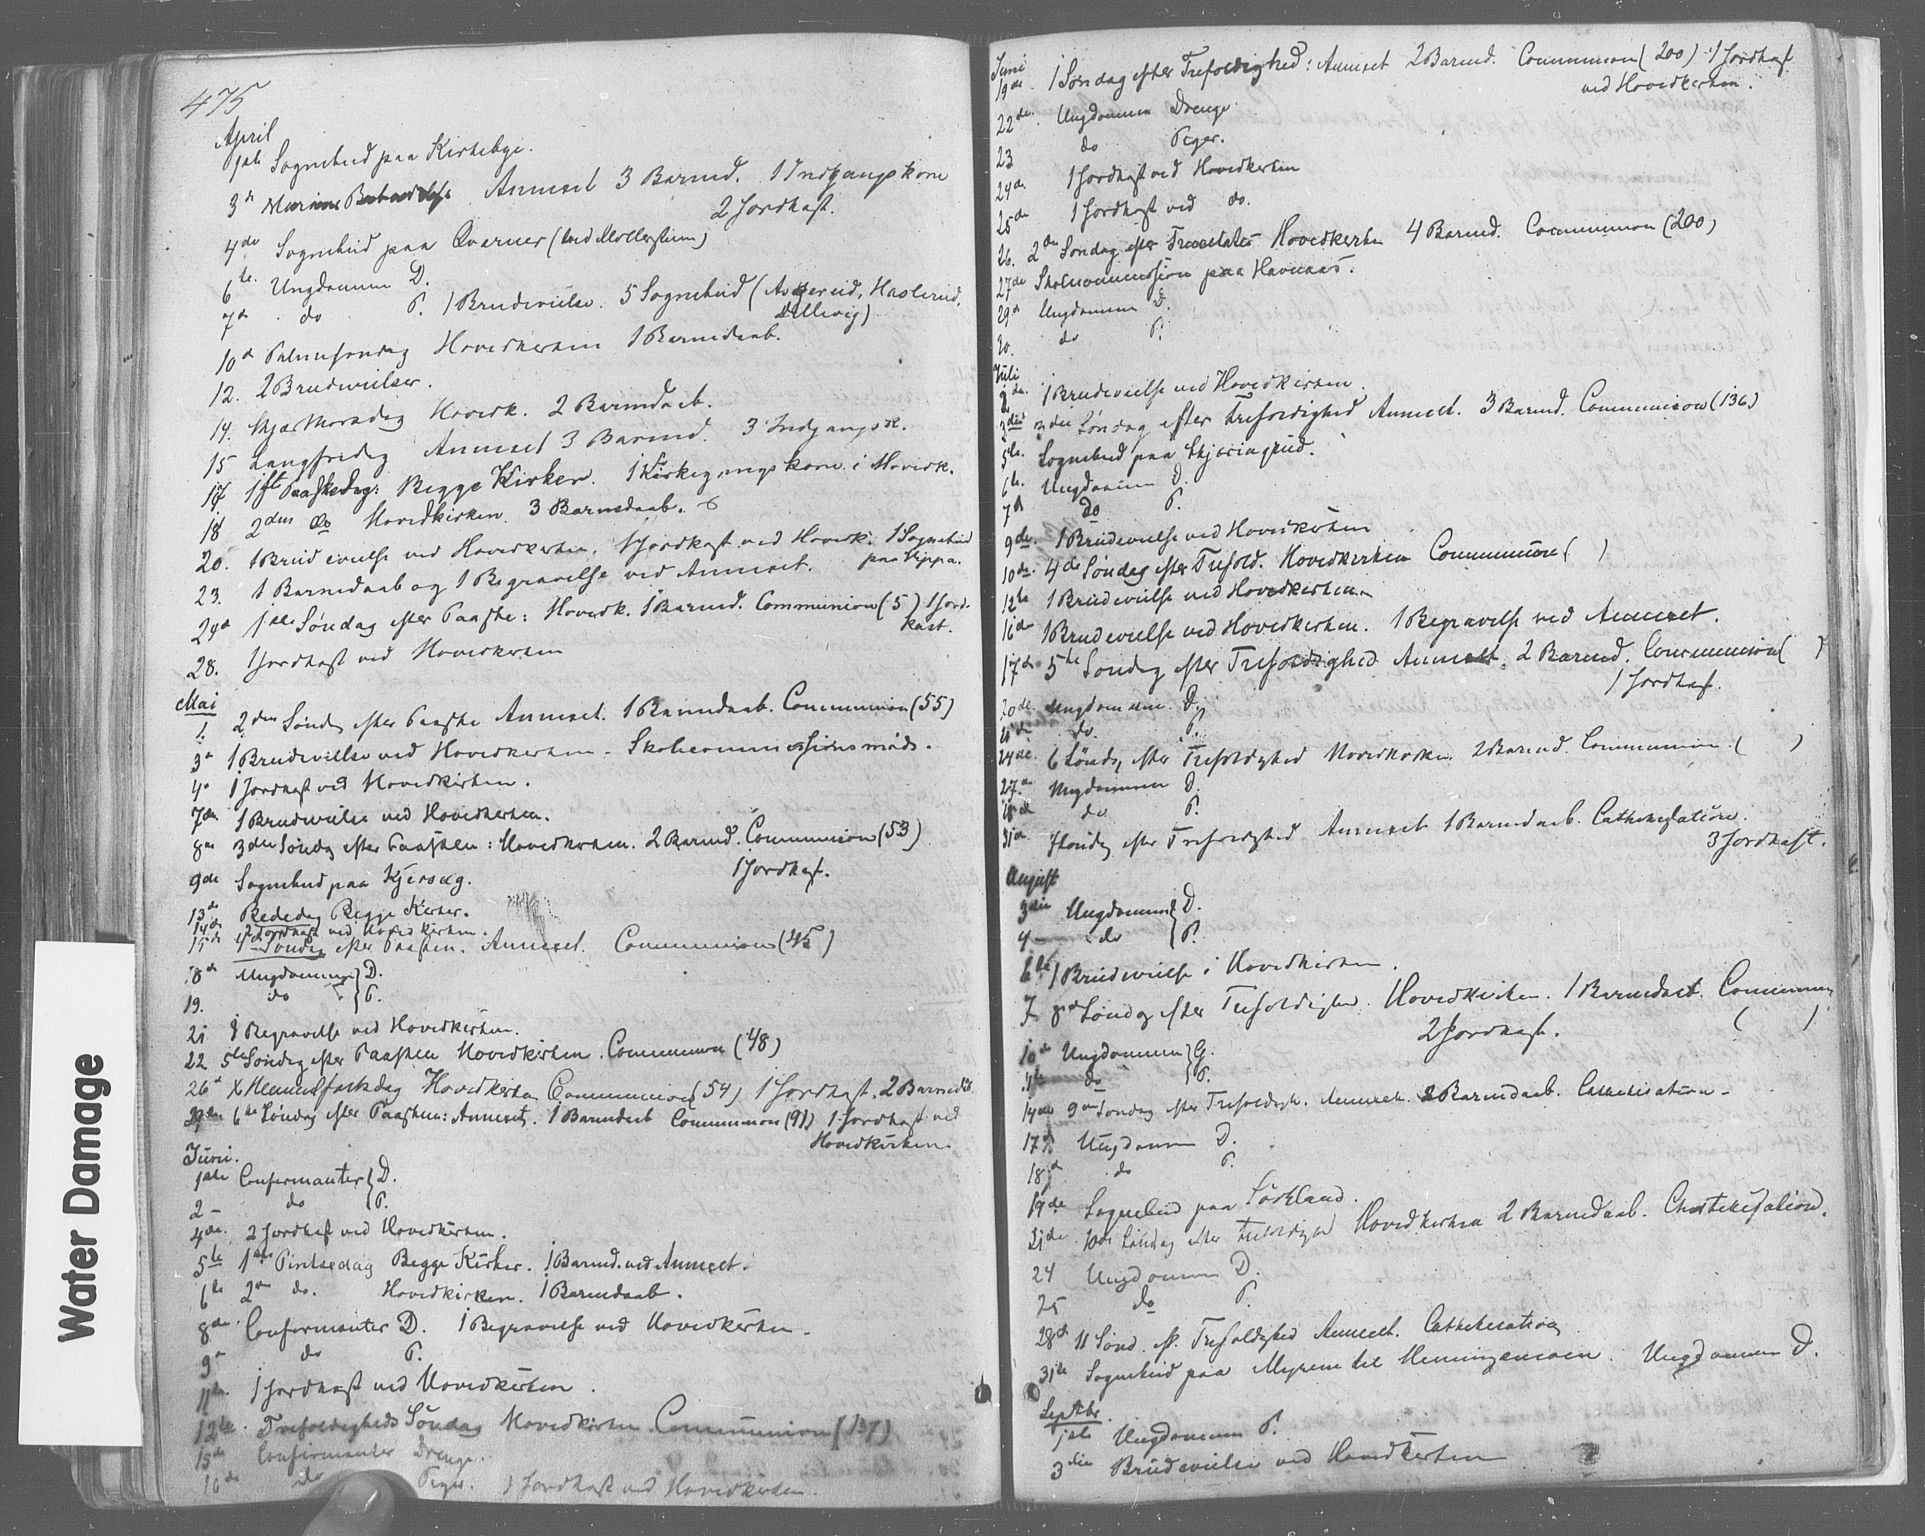 475
April
1ste Sognebud paa Kirkebye.
3de Mariæ Bebudelse Annexet 3 Barned. 1 Indgangskone
2 Jordkast.
4de Sognebud paa Qverner (ved Møllerstuen)
6te Ungdommen D.
7de do P. 1 Brudevielse. 5 Sognebud ( Haslerud,
Ullevig)
10de Palmesøndag Hovedkirken 1 Barnedaab.
12. 2 Brudevielser.
14. Skjærthorsdag Hovedk. 2 Barnedaab.
15 Langfredag Annexet 3 Barned. 3 Indgangsk.
17 1ste Paaskedag: Begge Kirker. 1 Kirkegangskone i Hovedk.
18 2den do Hovedkirken. 3 Barnedaab.
20. 1 Brudevielse ved Hovedkirken. 1 Jordkast ved Hovedk. 1 Sognebud
23. 1 Barnedaab og 1 Begravelse ved Annexet. paa
24de 1ste Søndag efter Paaske: Hovedk. 1 Barned. Communion (5) 1 Jord-
kast.
28. 1 Jordkast ved Hovedkirken
Mai
1. 2den Søndag efter Paaske Annexet. 1 Barnedaab. Communion (55)
3de 1 Brudevielse ved Hovedkirken - Skolecommissionsmøde.
4de 1 Jordkast ved Hovedkirken.
7de 1 Brudevielse ved Hovedkirken.
8de 3die Søndag efter Paasken: Hovedkirken. 2 Barned. Communion (53)
1 Jordkast.
9de Sognebud paa Kjersug.
13de Bededag Begge Kirker.
14de 2 Jordkast ved Hovedkirken.
15de 4de Søndag efter Paasken. Annexet. Communion (45)
18de Ungdommen D.
19. do P.
21 1 Begravelse ved Hovedkirken.
22 5te Søndag efter Paasken Hovedkirken. Communion (48)
26de Xti Himmelfartsdag Hovedkirken Communion (54) 1 Jordkast. 2 Barnedaab
29de 6te Søndag efter Paasken: Annexet. 1 Barnedaab Communion (91) 1 Jordkast ved
Hovedkirken.
Juni.
1ste Confirmanter D.
2 - do P.
4de. 2 Jordkast ved Hovedkirken.
5te 1ste Pintsedag Begge Kirker. 1 Barned. ved Annexet.
6te 2den do. Hovedkirken. 1 Barnedaab.
8de Confirmanter D. 1 Begravelse ved Hovedkirken.
9de do P.
11te 1 Jordkast ved Hovedkirken.
12te Trefoldigheds Søndag Hovedkirken Communion (137)
15de Confirmanter Drenge.
16de do Piger. 1 Jordkast ved Hovedkirken.
Juni
19de 1 Søndag efter Trefoldighed: Annexet 2 Barned. Communion (200) 1 Jordkast
ved Hovedkirken.
22de. Ungdommen Drenge.
23 do Piger.
24de 1 Jordkast ved Hovedkirken
25de 1 Jordkast ved do.
26. 2den Søndag efter Trinitatis Hovedkirken 4 Barned. Communion (200)
27de Skolecommission paa Havnaas.
29de Ungdommen D.
30. do P.
Juli
2de. 1 Brudevielse ved Hovedkirken.
3die 3die Søndag efter Trefoldighed Annexet. 3 Barned. Communion (136)
5te. Sognebud paa Skjæringrud.
6te. Ungdommen D.
7de do P.
9de. 1 Brudevielse ved Hovedkirken
10de 4de Søndag efter Trefold. Hovedkirken Communion ( )
12te 1 Brudevielse ved Hovedkirken.
16de 1 Brudevielse ved Hovedkirken. 1 Begravelse ved Annexet.
17de 5te Søndag efter Trefoldighed Annexet. 2 Barned. Communion ( )
1 Jordkast.
20de. Ungdommen. D.
21de do. P.
24de. 6 Søndag efter Trefoldighed Hovedkirken. 2 Barned. Communion. ( )
27de Ungdommen D.
28de do P.
31te 7 Søndag efter Trefoldighed Annexet 1 Barnedaab. Cathekisation.
3 Jordkast.
August
3die Ungdommen D.
4 - do P.
6te 1 Brudevielse i Hovedkirken.
7 8de Søndag efter Trefoldighed. Hovedkirken. 1 Barnedaab. Communion
2 Jordkast. ( )
10de Ungdommen G.
11te do P.
14de 9de Søndag efter Trefoldigh. Annexet. 2 Barnedaab. Cathekisation.
17de Ungdommen D.
18de do P.
19de Sognebud paa Sørbland.
21de 10de Søndag efter Trefoldighed Hovedkirken 2 Barnedaab. Chatekisation.
24 Ungdommen D.
25 do P.
28de 11 Sønd. e. Trefoldighed Annexet. Cathekisation
31te Sognebud paa Myrene til Hemingsmoen. Ungdommen D.
Septbr.
1ste Ungdommen P.
3die Brudevielse ved Hovedkirken
Water Damage